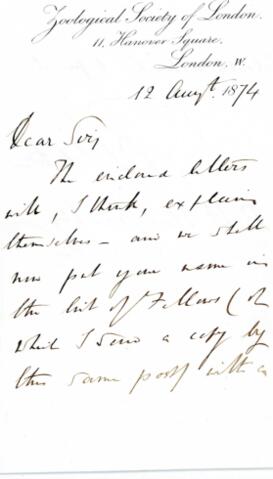 Zoological Society of London.
11, Hanover Square.
London. W.
12 Augt. 1874
Dear Sir,
The enclosed letters
will, I think, explain
themselves – and we shall
now put your name in
the list of Fellows (of
which I send a copy by
this same post) with a